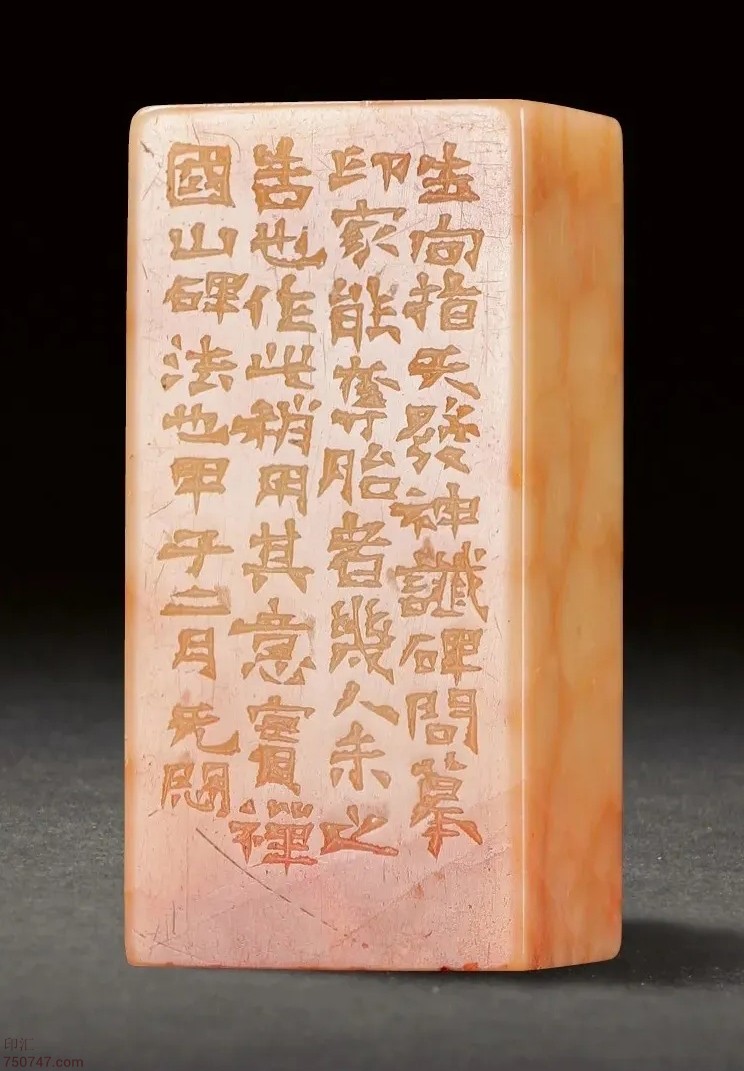 生向指天發神讖碑問摹
印家能奪胎者幾人未之
告也作此稍用其意實禪
國山碑法也甲子二月无悶
印汇
750747.com